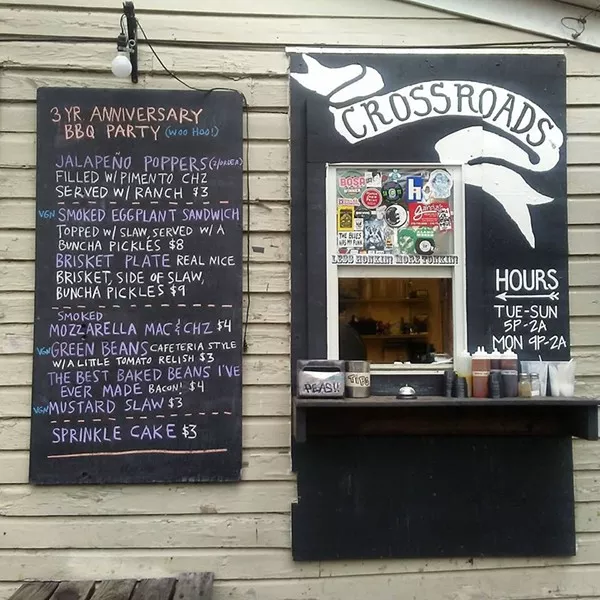 3 YR ANNIVERSARY
BBQ PARTY (WOO HOO!)
JALAPEÑO POPPERS (3/ORDER)
FILLED W/ PIMENTO CHZ
SERVED W/ RANCH $3
VGN SMOKED EGGPLANT SANDWICH
TOPPED W/ SLAW, SERVED W/ A
BUNCHA PICKLES $8
BRISKET PLATE REAL NICE
BRISKET, SIDE OF SLAW,
BUNCHA PICKLES $9
SMOKED
MOZZARELLA MAC & CHZ $4
VGN GREEN BEANS CAFETERIA STYLE
W/ A LITTLE TOMATO RELISH $3
THE BEST BAKED BEANS I'VE
EVER MADE BACON! $4
VGN MUSTARD SLAW $3
SPRINKLE CAKE $3
CROSSROADS
LESS HONKIN' MORE TONKIN'
HOURS
TUE-SUN
5P-2A
MON 9P-2A
TIPS